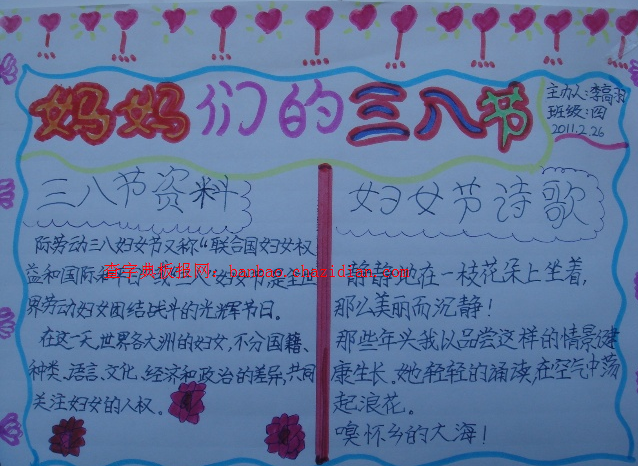 妈妈们的三八节
主办人:李高羽
班级:四
2011.2.26
三八节资料
际劳动三八妇女节又称"联合国妇女权
益和国际
"三八"妇女节,是全世
界劳动妇女团结战斗的光辉节日。
在这一天,世界各大洲的妇女,不分国籍、
种类、语言、文化、经济和政治的差异,共同
关注妇女的人权。
妇女节诗歌
静静地在一枝花朵上坐着,
那么美丽而沉静!
那些年头我以品尝这样的情景健
康生长。她轻轻的诵读,在空气中荡
起浪花。
噢怀乡的大海!
banbao.chazidian.com